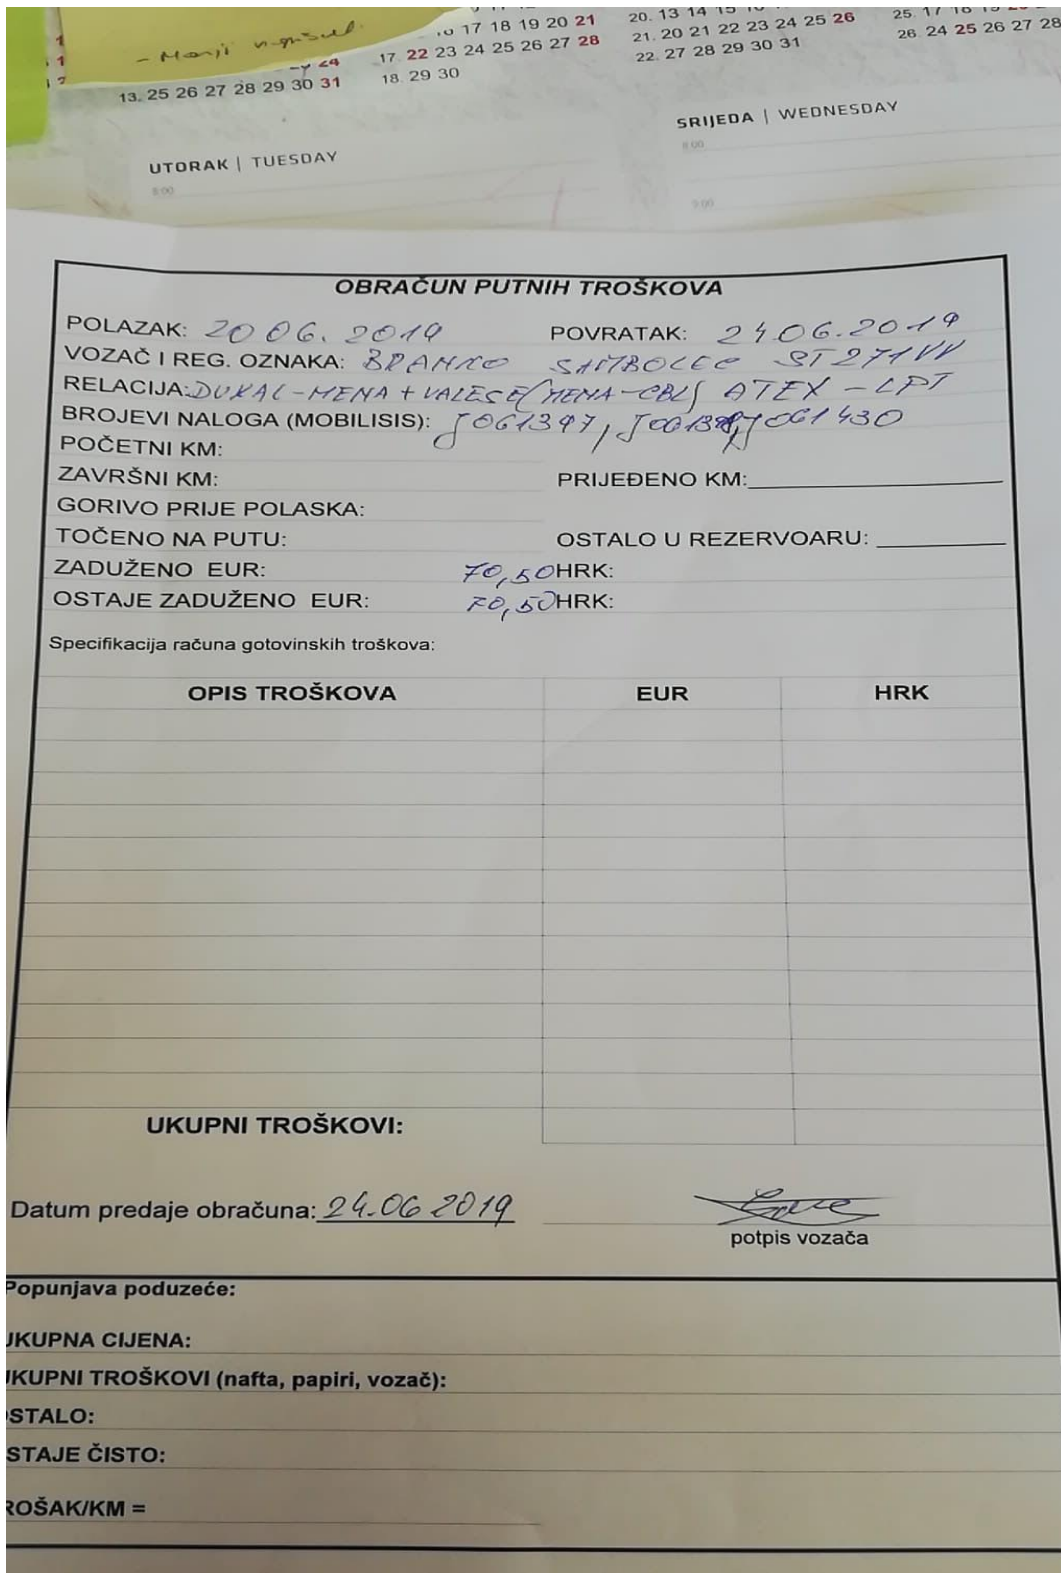 - Manji
16 17 18 19 20 21
17. 22 23 24 25 26 27 28
18. 29 30
13. 25 26 27 28 29 30 31
20. 13 14 15 16
21. 20 21 22 23 24 25 26
22. 27 28 29 30 31
25. 17 18 19
26. 24 25 26 27 28
UTORAK | TUESDAY
8:00
SRIJEDA | WEDNESDAY
8:00
9:00
OBRAČUN PUTNIH TROŠKOVA
POLAZAK: 20 06. 2019 POVRATAK: 24.06.2019
VOZAČ I REG. OZNAKA: BRANKO SAMBOLEC ST271VV
RELACIJA: DUKAL-MENA + VALESE (MENA-CBL) ATEX - LPT
BROJEVI NALOGA (MOBILISIS): J061397, J061430
POČETNI KM:
ZAVRŠNI KM: PRIJEĐENO KM:
GORIVO PRIJE POLASKA:
TOČENO NA PUTU: OSTALO U REZERVOARU:
ZADUŽENO EUR: 70,50 HRK:
OSTAJE ZADUŽENO EUR: 70,50 HRK:
Specifikacija računa gotovinskih troškova:
OPIS TROŠKOVA EUR HRK
UKUPNI TROŠKOVI:
Datum predaje obračuna: 24.06 2019
potpis vozača
Popunjava poduzeće:
UKUPNA CIJENA:
UKUPNI TROŠKOVI (nafta, papiri, vozač):
OSTALO:
OSTAJE ČISTO:
TROŠAK/KM =